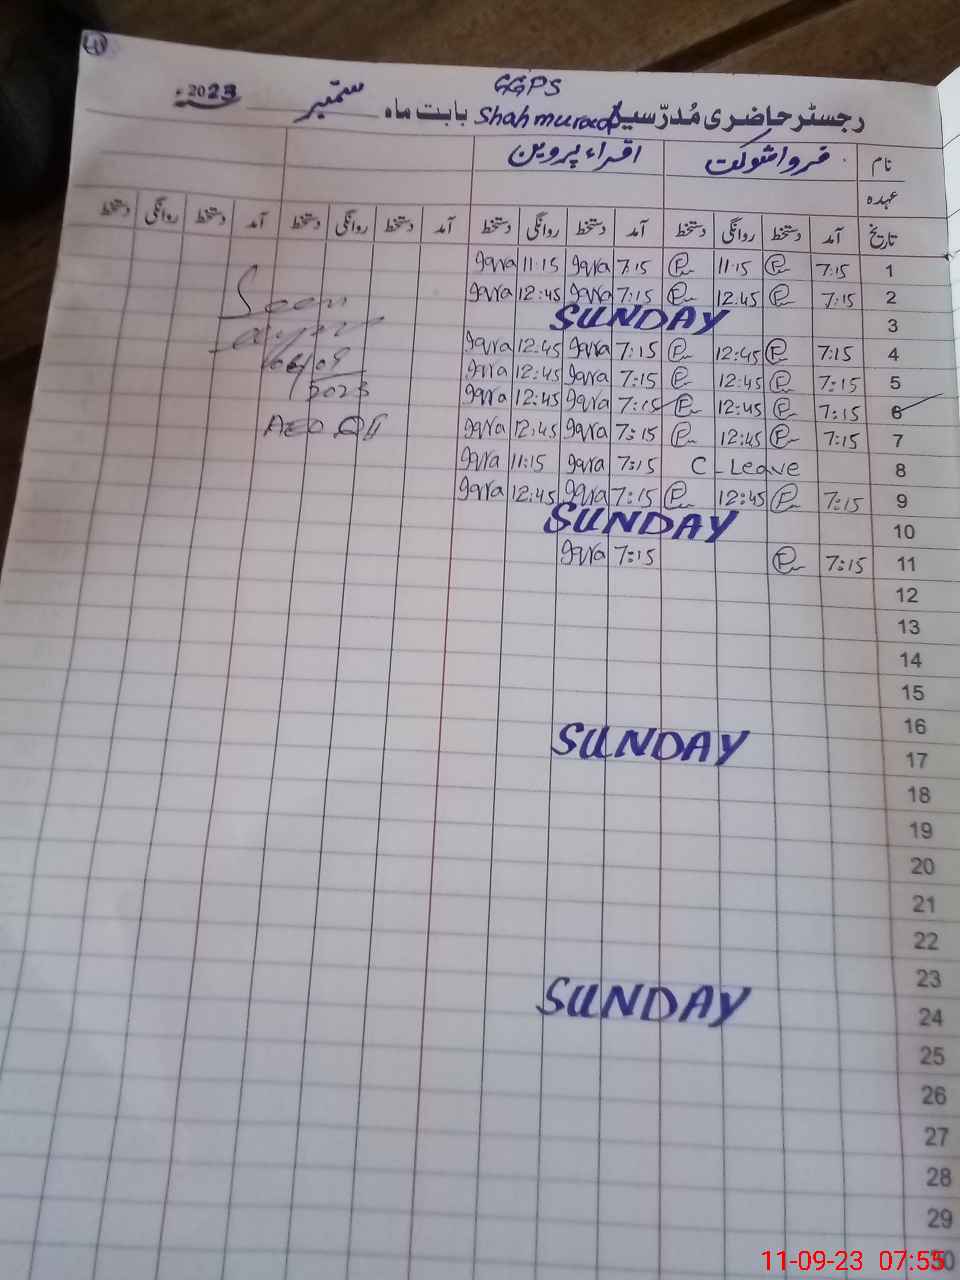 GGPS
رجسٹر حاضری مُدرّسین Shahmurad بابت ماہ ستمبر 2023ء
نام فروا شوکت اقراء پروین
عہدہ
تاریخ آمد دستخط روانگی دستخط آمد دستخط روانگی دستخط آمد دستخط روانگی دستخط آمد دستخط روانگی دستخط
1 7:15 11:15 7:15 Iqra 11:15 Iqra
2 7:15 12:45 7:15 Iqra 12:45 Iqra
3 SUNDAY
4 7:15 12:45 7:15 Iqra 12:45 Iqra
5 7:15 12:45 7:15 Iqra 12:45 Iqra
6 7:15 12:45 7:15 Iqra 12:45 Iqra
7 7:15 12:45 7:15 Iqra 12:45 Iqra
8 C-Leave 7:15 Iqra 11:15 Iqra
9 7:15 12:45 7:15 Iqra 12:45 Iqra
10 SUNDAY
11 7:15 7:15 Iqra
12
13
14
15
16
17 SUNDAY
18
19
20
21
22
23
24 SUNDAY
25
26
27
28
29
30
Seen
06/09
2023
AEO
11-09-23 07:55